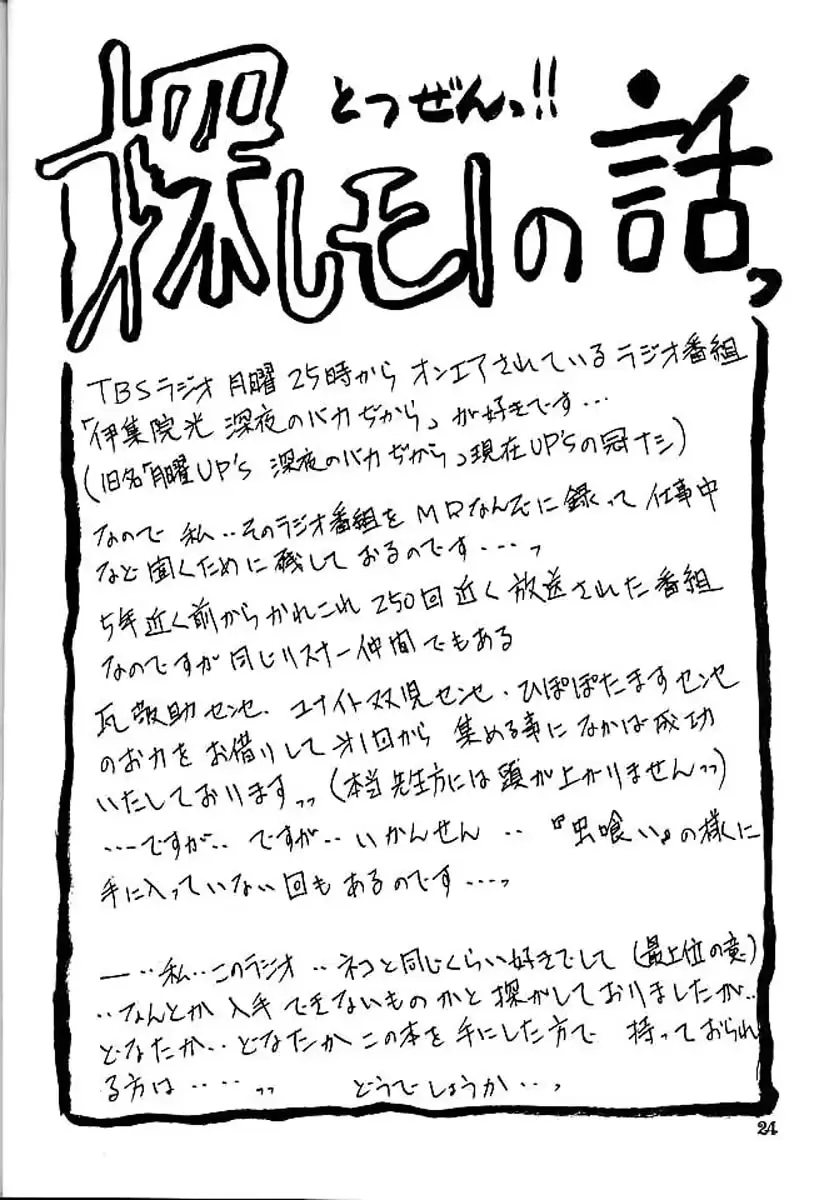 とつぜんっ!!
探しモノの話っ
TBSラジオ 月曜 25時から オンエアされている ラジオ番組
「伊集院光 深夜のバカぢから」が好きです…
(旧名「月曜UP'S 深夜のバカぢから」現在UP'Sの冠ナシ)
なので 私‥そのラジオ番組を MDなんぞに録って 仕事中
など聞くために残しておるのです……っ
5年近く前からかれこれ 250回近く 放送された番組
なのですが同じリスナー仲間でもある
瓦敬助センセ、ユナイト双児センセ・ひぽぽたますセンセ
のお力をお借りして 第1回から 集める事に なかば成功
いたしております〟(本当 先生方には頭が上がりませんっっ)
……ですが‥ ですが‥ いかんせん ‥ 『虫喰い』の様に
手に入っていない回もあるのです……っ
―‥私‥このラジオ‥ネコと同じくらい好きでして(最上位の意)
‥なんとか入手できないものかと探がしておりましたが‥
どなたか‥どなたかこの本を手にした方で 持っておられ
る方は‥‥っっ どうでしょうか‥っ
24